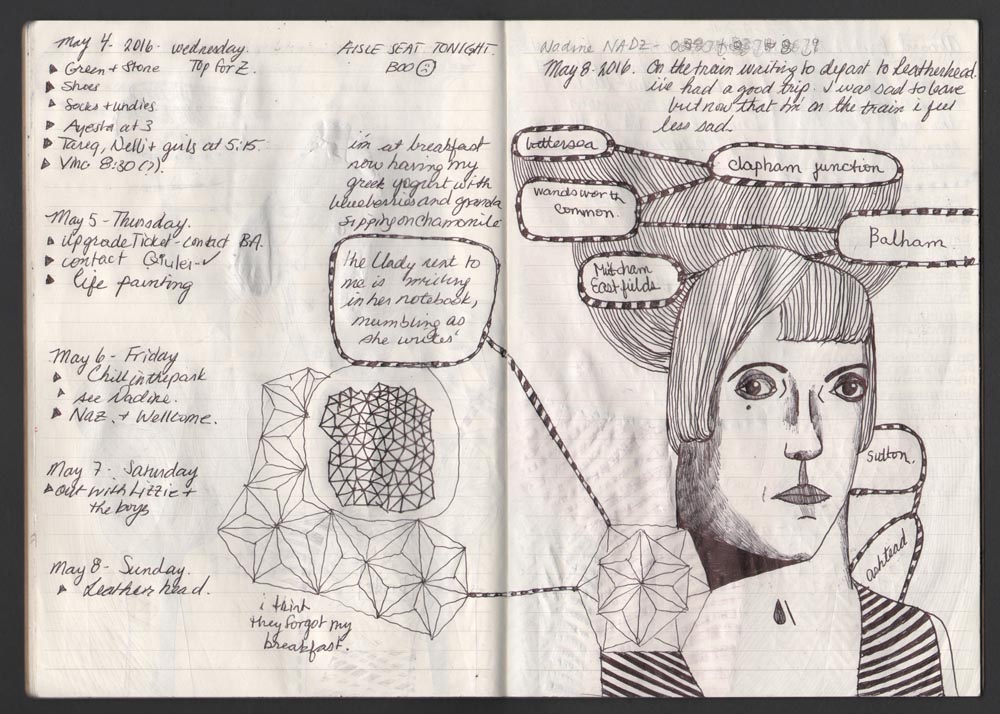 May 4 - 2016 - wednesday.
Green + Stone Top for Z.
Shoes
Socks + undies
Ayesha at 3
Tareq, Nelli + girls at 5:15.
8:30 (?).
May 5 - Thursday.
upgrade Ticket - contact BA.
contact
life painting
May 6 - Friday
Chill in the park
see Nadine.
Naz + Wellcome.
May 7 - Saturday
out with Lizzie +
the boys
May 8 - Sunday.
Leatherhead.
AISLE SEAT TONIGHT
BOO
i'm at breakfast
now having my
greek yogurt with
blueberries and granola
sipping on chamomile
the lady next to
me is writing
in her notebook,
mumbling as
she writes
i think
they forgot my
breakfast.
Nadine NADZ -
May 8 - 2016. On the train waiting to depart to Leatherhead.
i've had a good trip. I was sad to leave
but now that i'm on the train i feel
less sad.
battersea
clapham junction
wandsworth
Common.
Balham.
Mitcham
Eastfields
sutton.
ashtead